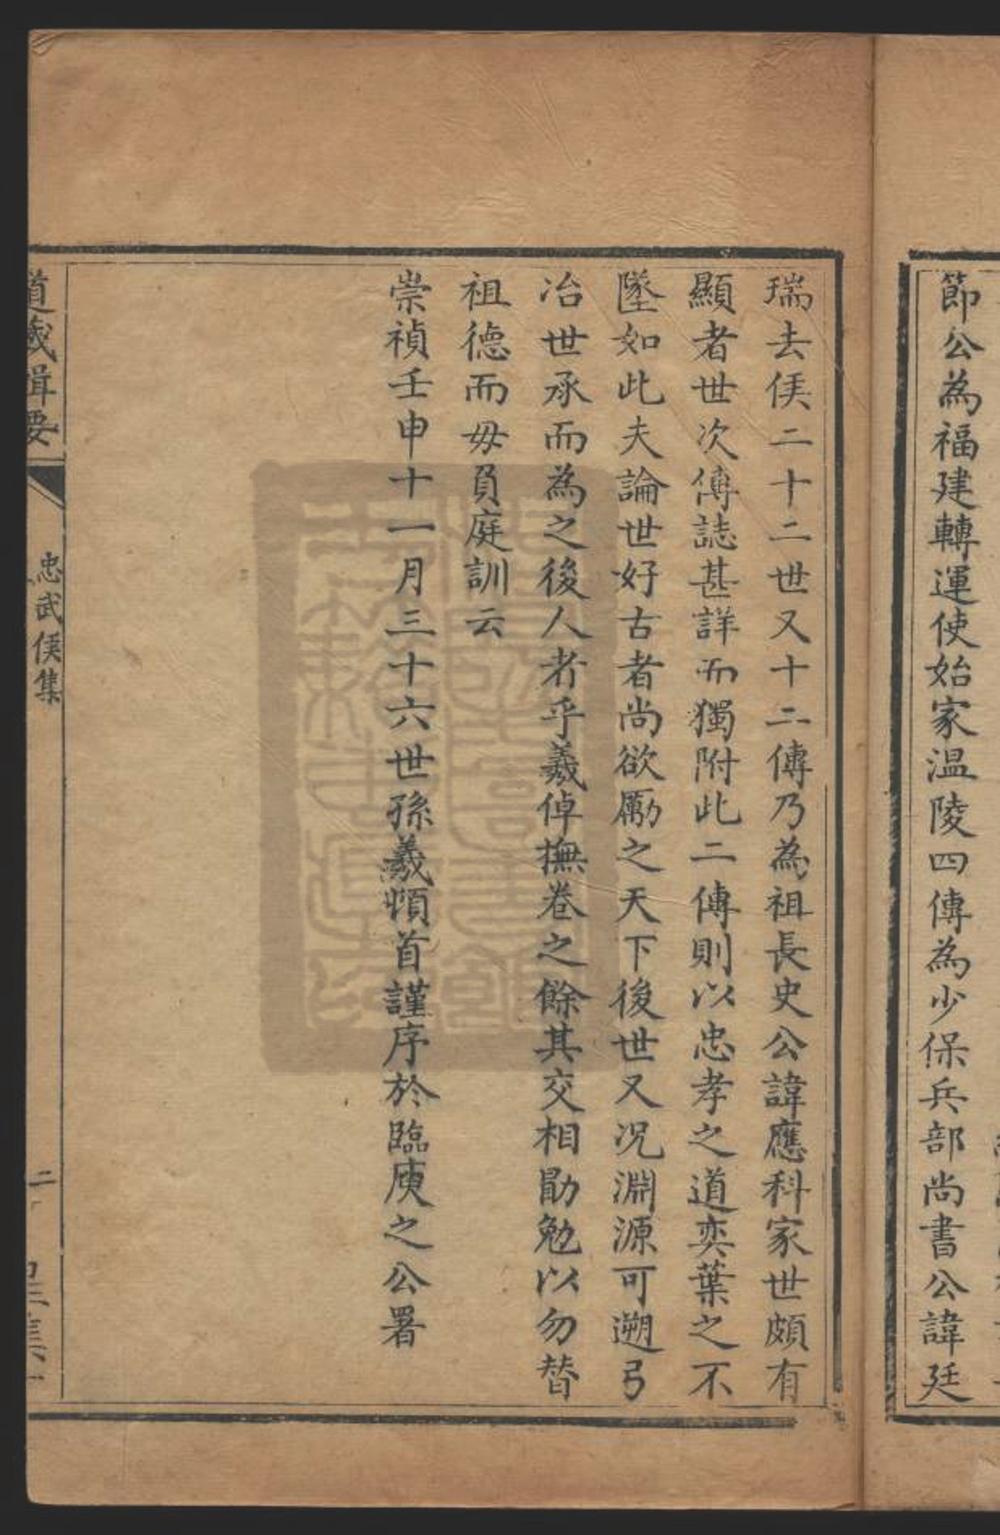 節公為福建轉運使始家温陵四傳為少保兵部尚書公諱廷
瑞去侯二十二世又十二傳乃為祖長史公諱應科家世頗有
顯者世次傳誌甚詳而獨附此二傳則以忠孝之道奕葉之不
墜如此夫論世好古者尚欲勵之天下後世又况淵源可遡弓
冶世承而為之後人者乎羲倬撫卷之餘其交相勖勉以勿替
祖德而毋負庭訓云
崇禎壬申十一月三十六世孫羲頓首謹序於臨庾之公署
道藏輯要
忠武侯集
二
星集